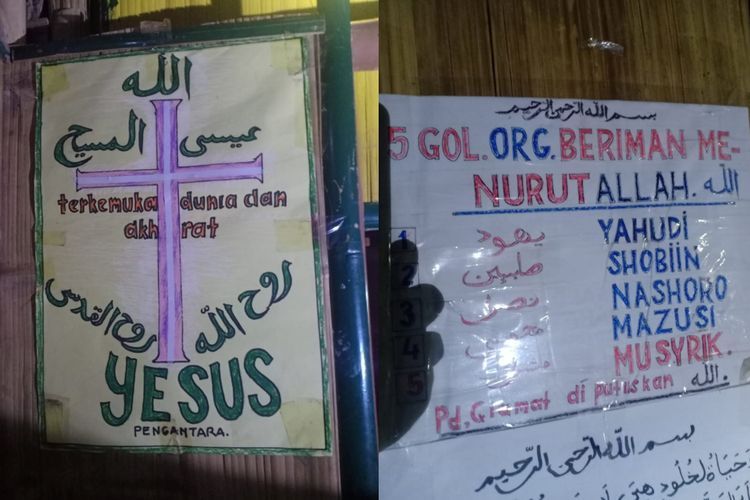 الله
عيسى المسيح
terkemuka dunia dan
akhirat
روح القدس روح الله
YESUS
PENGANTARA.
بسم الله الرحمن الرحيم
5 GOL. ORG. BERIMAN ME-
NURUT ALLAH. الله
1 يهود YAHUDI
2 صابئين SHOBIIN
3 NASHORO
4 MAZUSI
5 MUSYRIK.
Pd, Qiamat di putuskan الله.
بسم الله الرحمن الرحيم